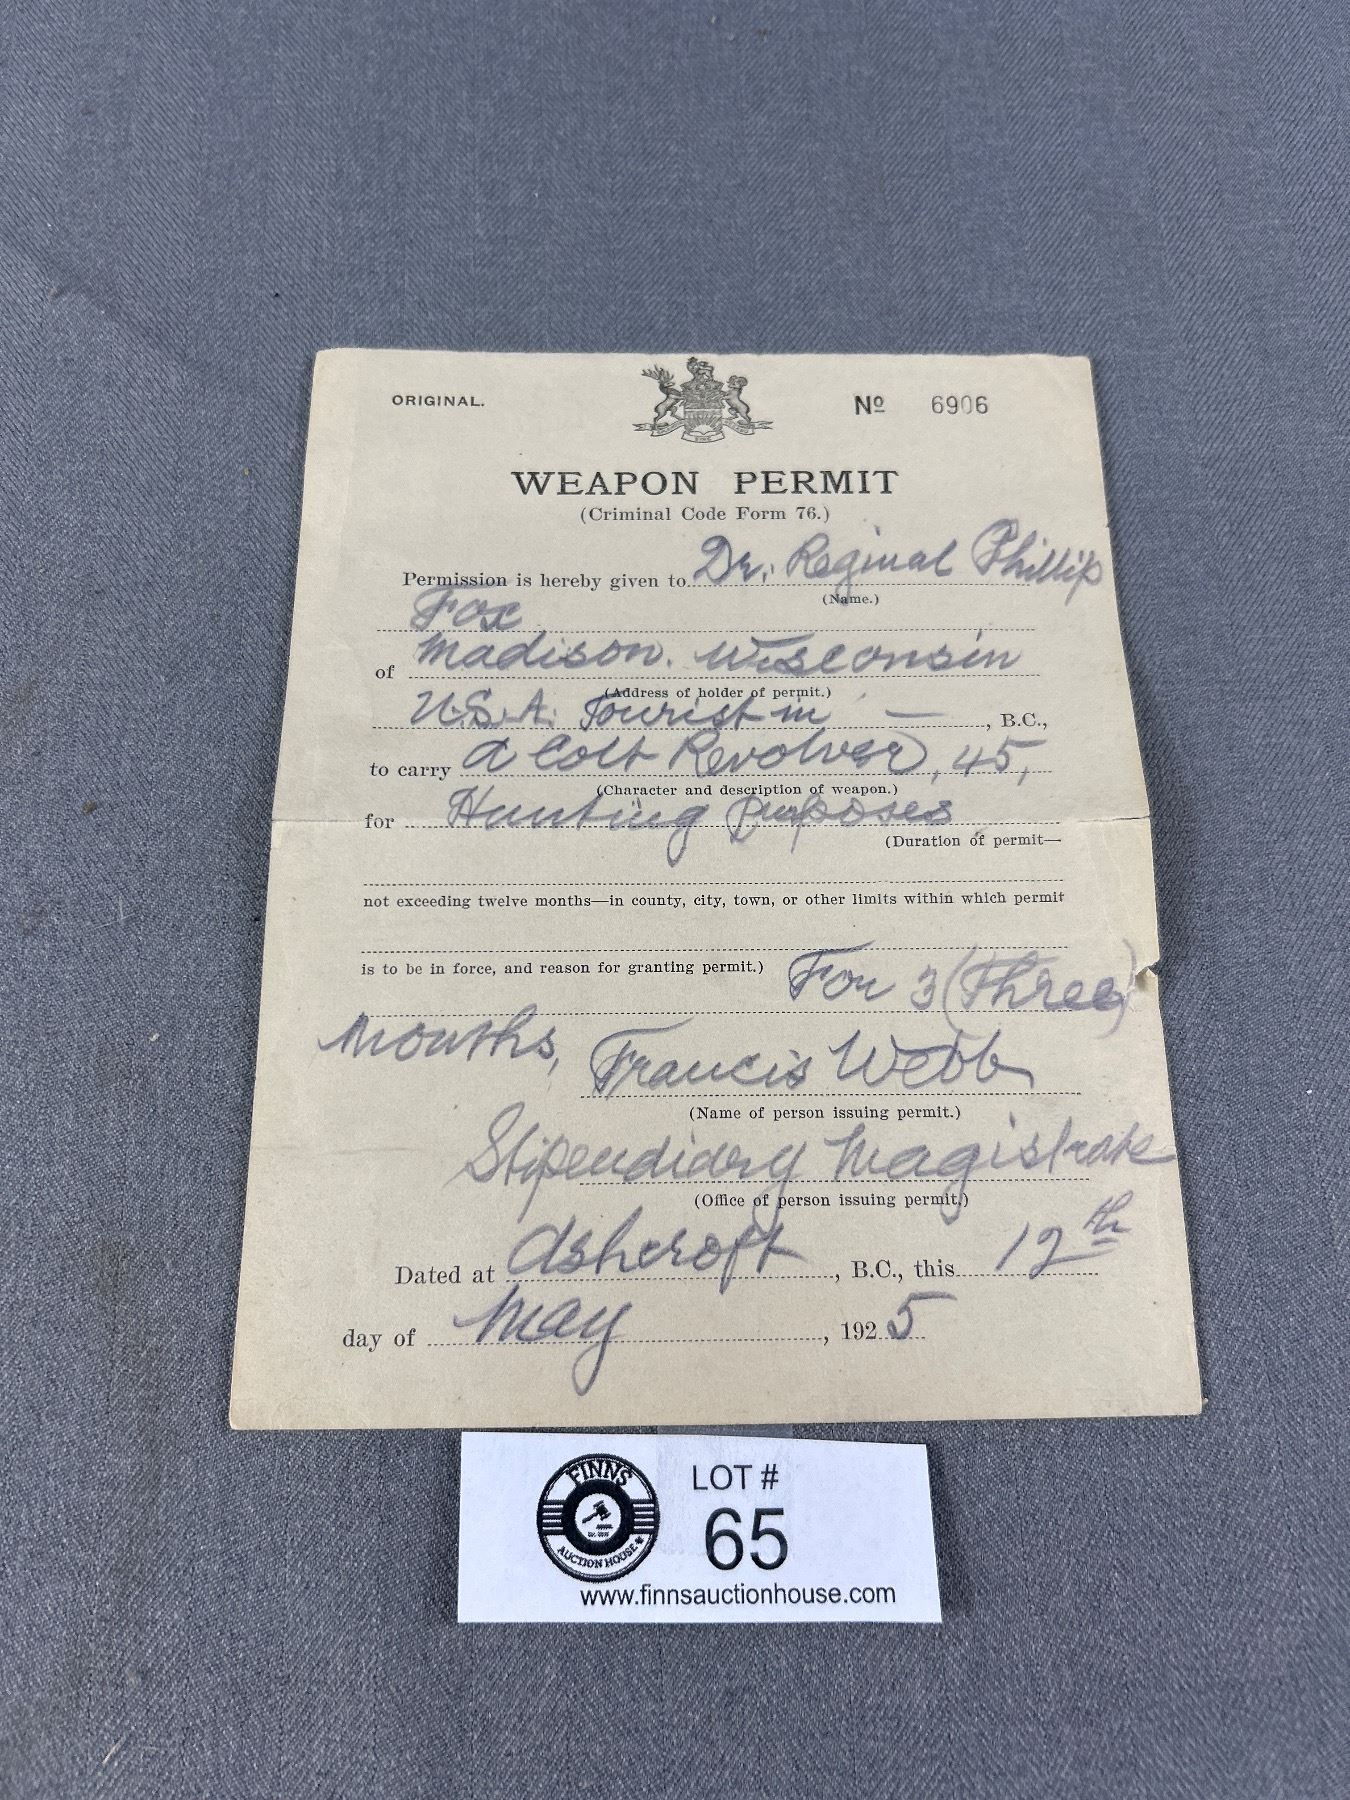 ORIGINAL.
Nº 6906
WEAPON PERMIT
(Criminal Code Form 76.)
Permission is hereby given to Dr. Reginal Phillip
(Name.)
Fox
of Madison. Wisconsin
(Address of holder of permit.)
U.S.A. Tourist in — , B.C.,
to carry a Colt Revolver, 45,
(Character and description of weapon.)
for Hunting purposes
(Duration of permit—
not exceeding twelve months—in county, city, town, or other limits within which permit
is to be in force, and reason for granting permit.) For 3 (Three)
Months,
Francis Webb
(Name of person issuing permit.)
Stipendiary Magistrate
(Office of person issuing permit.)
Dated at Ashcroft, B.C., this 12th
day of May, 1925
FINNS
AUCTION HOUSE
LOT #
65
www.finnsauctionhouse.com